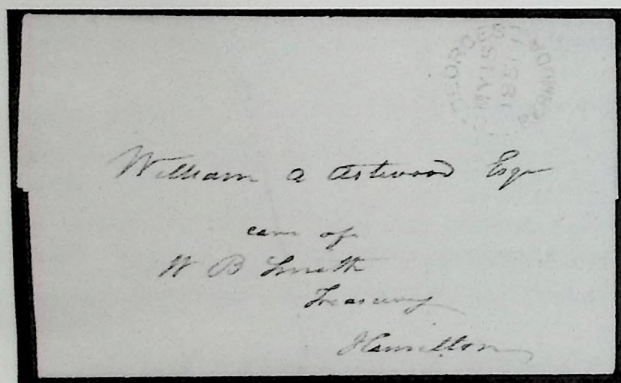 William A Astwood Esqr
care of
W B Smith
Treasury
Hamilton